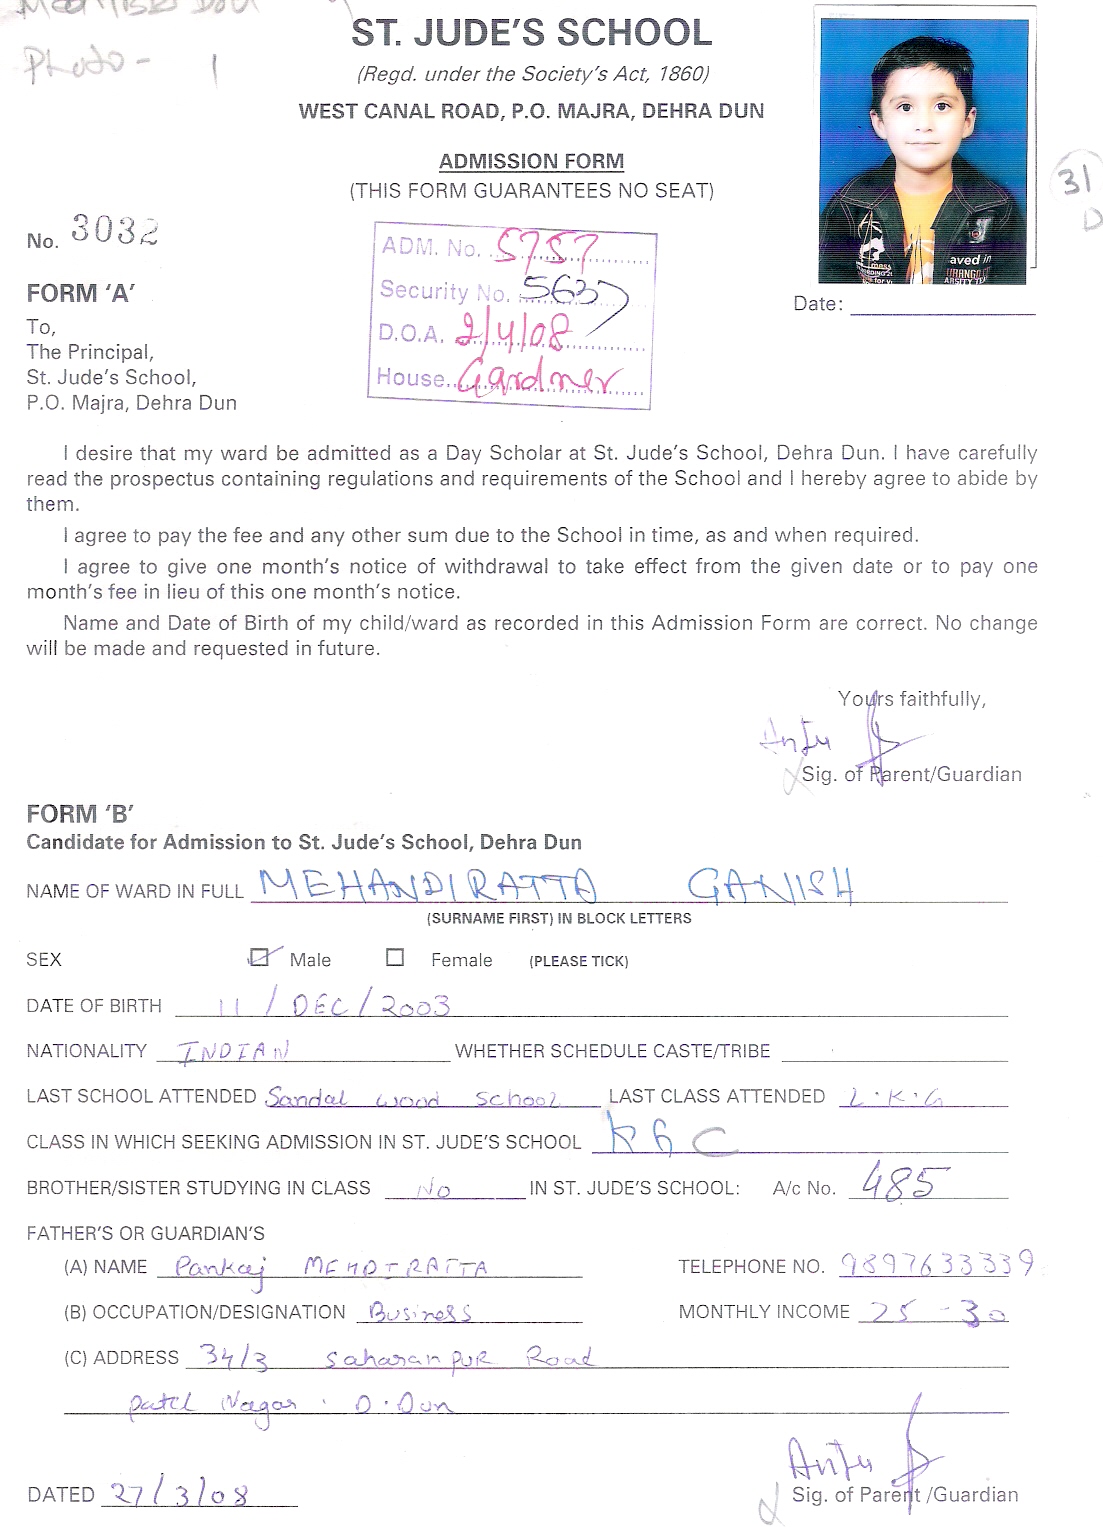 Photo - 1
ST. JUDE'S SCHOOL
(Regd. under the Society's Act, 1860)
WEST CANAL ROAD, P.O. MAJRA, DEHRA DUN
ADMISSION FORM
(THIS FORM GUARANTEES NO SEAT)
31
D
No. 3032
ADM. No. 5757
Security No. 5637
D.O.A. 2/4/08
House. Gardner
aved in
Date:
FORM 'A'
To,
The Principal,
St. Jude's School,
P.O. Majra, Dehra Dun
I desire that my ward be admitted as a Day Scholar at St. Jude's School, Dehra Dun. I have carefully
read the prospectus containing regulations and requirements of the School and I hereby agree to abide by
them.
I agree to pay the fee and any other sum due to the School in time, as and when required.
I agree to give one month's notice of withdrawal to take effect from the given date or to pay one
month's fee in lieu of this one month's notice.
Name and Date of Birth of my child/ward as recorded in this Admission Form are correct. No change
will be made and requested in future.
Yours faithfully,
Anju
Sig. of Parent/Guardian
FORM 'B'
Candidate for Admission to St. Jude's School, Dehra Dun
NAME OF WARD IN FULL MEHANDIRATTA GANISH
(SURNAME FIRST) IN BLOCK LETTERS
SEX Male Female (PLEASE TICK)
DATE OF BIRTH 11/DEC/2003
NATIONALITY INDIAN WHETHER SCHEDULE CASTE/TRIBE
LAST SCHOOL ATTENDED Sandal wood School LAST CLASS ATTENDED L.K.G
CLASS IN WHICH SEEKING ADMISSION IN ST. JUDE'S SCHOOL KG C
BROTHER/SISTER STUDYING IN CLASS No IN ST. JUDE'S SCHOOL: A/c No. 485
FATHER'S OR GUARDIAN'S
(A) NAME Pankaj MEHDIRATTA TELEPHONE NO. 9897633339
(B) OCCUPATION/DESIGNATION Business MONTHLY INCOME 25 - 30
(C) ADDRESS 34/3 Saharanpur Road
Patel Nagar . D.Dun
Anju
DATED 27/3/08 Sig. of Parent /Guardian